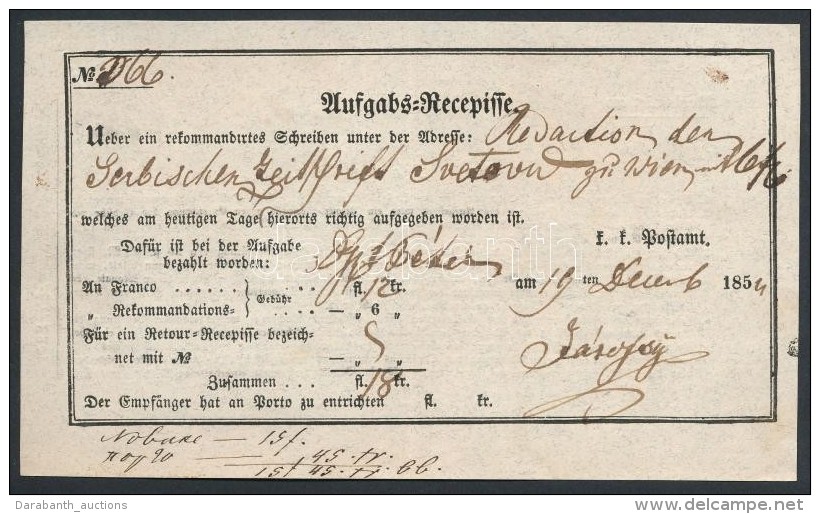 № 366.
Aufgabs-Recepisse.
Ueber ein rekommandirtes Schreiben unter der Adresse: Redaction der
Serbischen Zeitschrift Svetovid zu Wien mit
welches am heutigen Tage hierorts richtig aufgegeben worden ist.
Dafür ist bei der Aufgabe
bezahlt worden:
k. k. Postamt.
am 19 ten Decemb 1854
An Franco . . . . . . Gebühr fl. 12 kr.
„ Rekommandations- . . . . — „ 6 „
Für ein Retour-Recepisse bezeich-
net mit № — „ „
Zusammen . . . fl. 18 kr.
Der Empfänger hat an Porto zu entrichten fl. kr.
— 15 f.
— 45 kr.
15 f 45 kr.
darabanth
Darabanth_auctions
delcampe.net